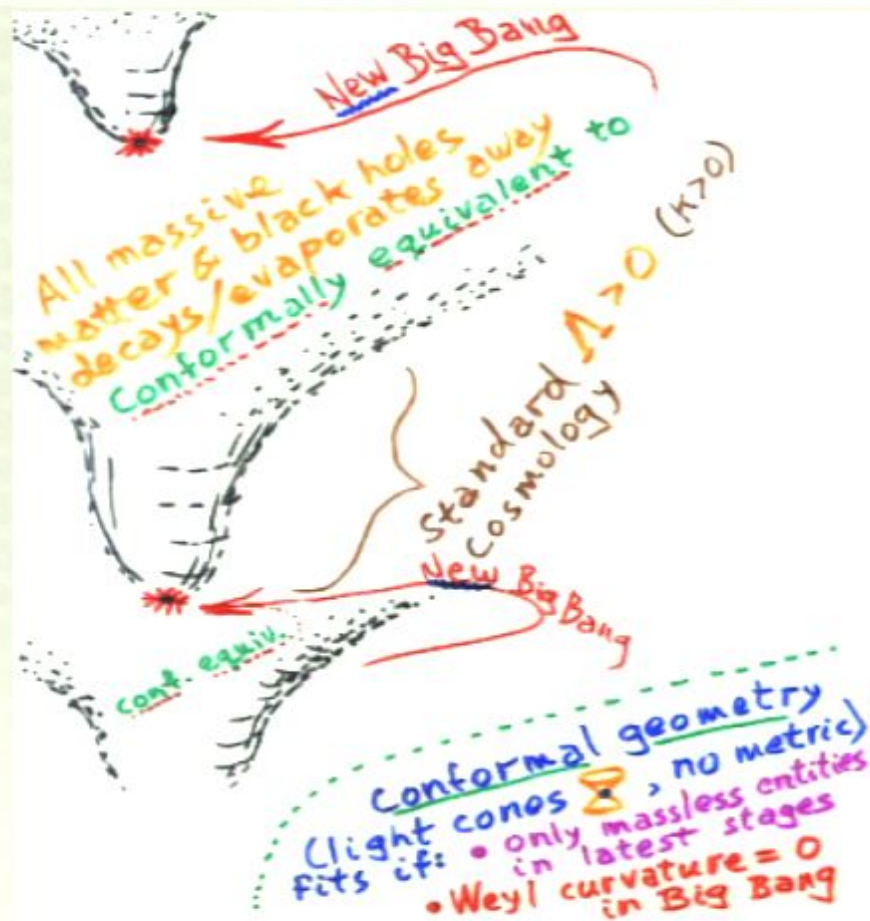 New Big Bang
All massive
matter & black holes
decays/evaporates away
Conformally equivalent to
Standard Λ > 0 (K>0)
Cosmology
New Big Bang
conf. equiv.
Conformal geometry
(light cones , no metric)
fits if: • only massless entities
in latest stages
• Weyl curvature = 0
in Big Bang